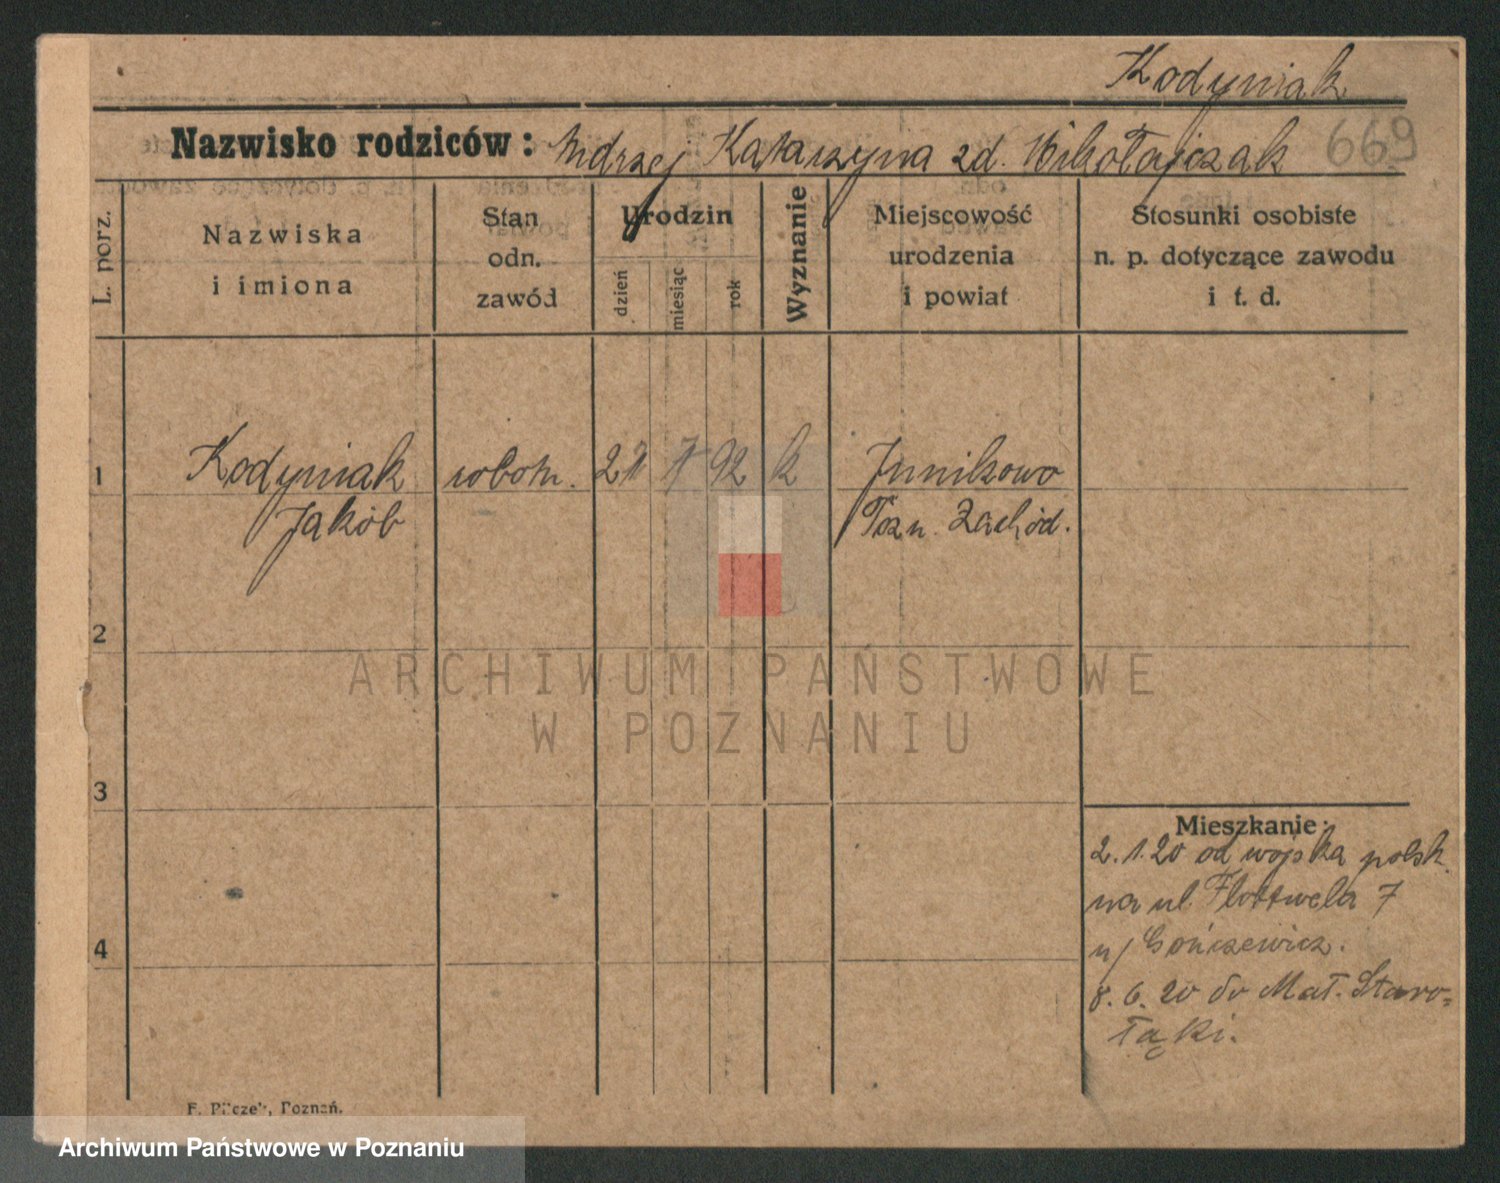 Kodyniak
Nazwisko rodziców: Andrzej Katarzyna zd. Wikołajczak 669
L. porz.
Nazwiska
i imiona
Stan
odn.
zawód
Urodzin
dzień
miesiąc
rok
Wyznanie
Miejscowość
urodzenia
i powiat
Stosunki osobiste
n. p. dotyczące zawodu
i t. d.
1
Kodyniak robotn. 7 92 k Junikowo
Jakób Pozn. Zachód.
2
ARCHIWUM PAŃSTWOWE
W POZNANIU
3
Mieszkanie:
2.1.20 od wojska polsk.
na ul Flottwela 7
u/ Gończewicz.
8.6.20 do Mał. Staro=
łąki.
4
Poznań.
Archiwum Państwowe w Poznaniu